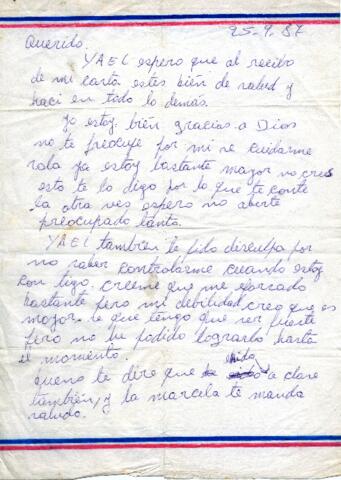 25-9-87
Querido.
YAEL espero que al recibo
de mi carta estes bién de salud y
haci en todo lo demás.
Yo estoy bién gracias a Dios
no te preocupe por mi se cuidarme
sola ya estoy bastante mayor no crees
esto te lo digo por lo que te conte
la otra ves espero no aberte
preocupado tanto.
YAEL tambien te pido disculpa por
no saber controlarme cuando estoy
con tigo. creeme que me esforzado
bastante pero mi debilidad creo que es
mayor. se que tengo que ser fuerte
pero no he podido lograrlo hasta
el momento.
gueno te dire que a clare
también, y la marcela te manda
saludo.